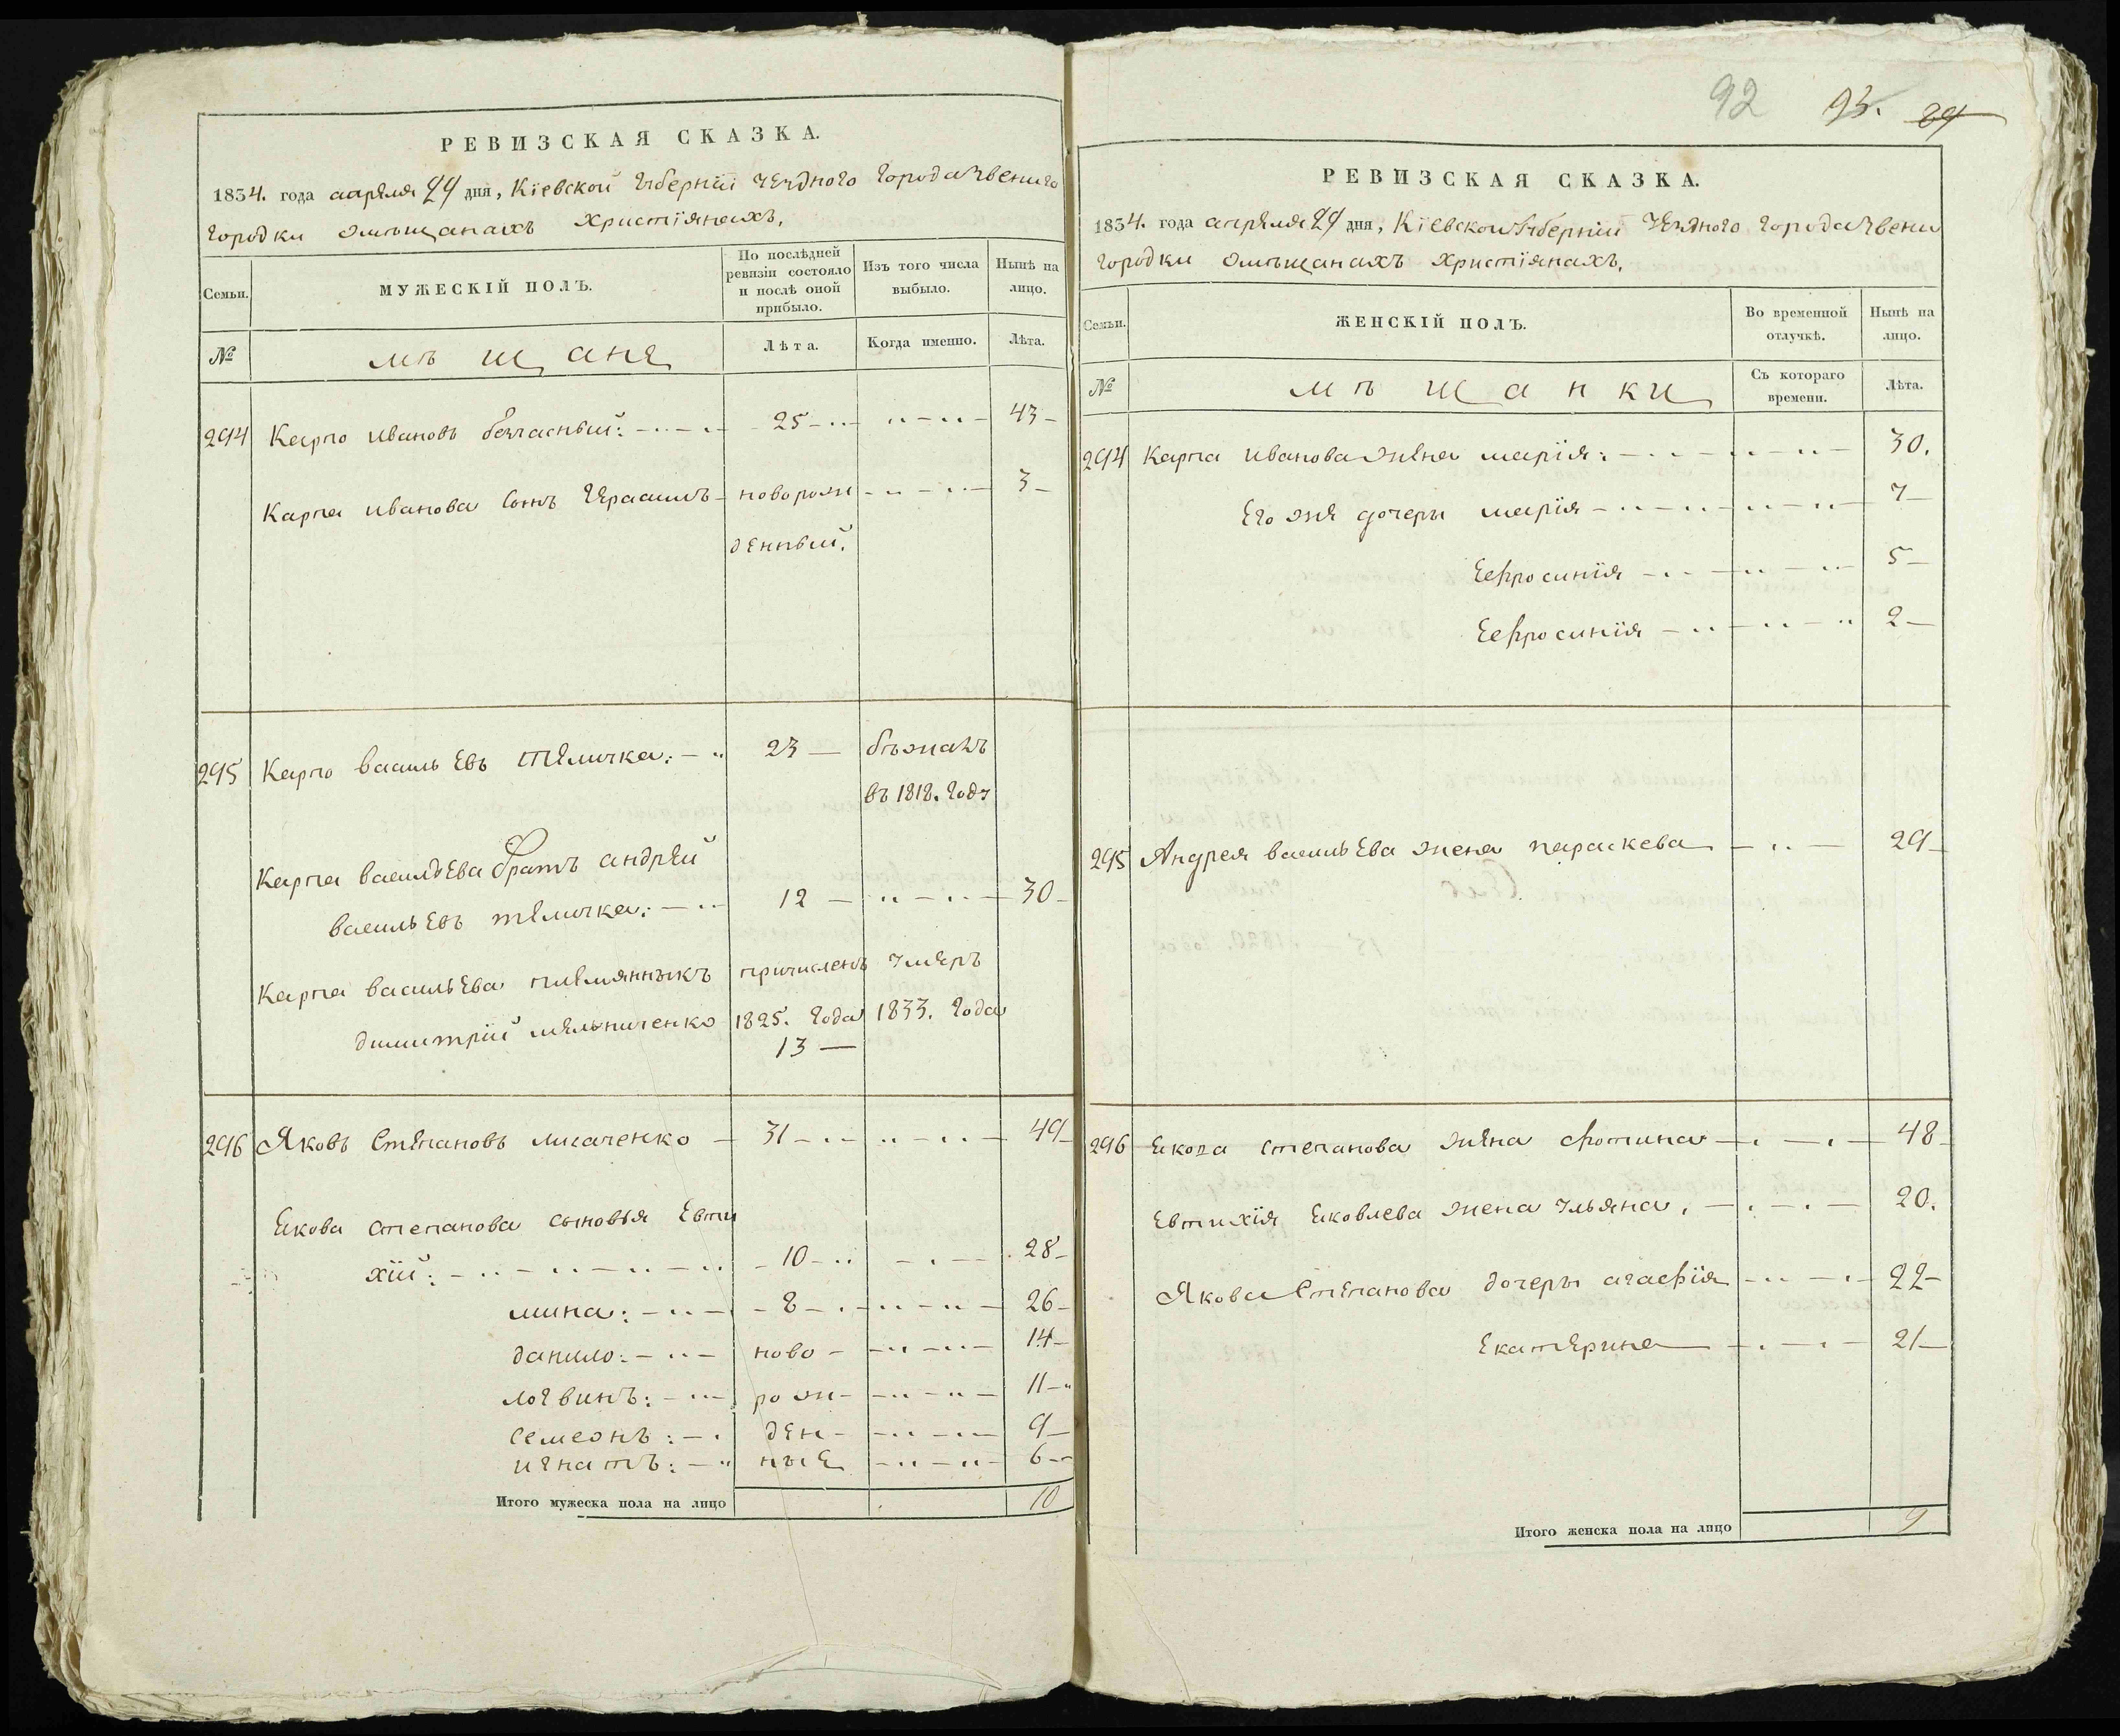 92 93. 89
РЕВИЗСКАЯ СКАЗКА.
1834. года апреля 24 дня, Кіевской Губерніи уезднаго города Звениго
городки омѣщанахъ христіянахъ.
Семьи. МУЖЕСКІЙ ПОЛЪ. По послѣдней ревизіи состояло и послѣ оной прибыло. Изъ того числа выбыло. Нынѣ на лицо.
№ мѣщане Лѣта. Когда именно. Лѣта.
294 Карпо Ивановъ безчасный: 25 43
Карпа иванова сынъ Герасимъ новорож 3
денный.
295 Карпо васильевъ теличка: 23 бѣжалъ
въ 1818. году
Карпа васильева братъ андрей
васильевъ теличка: 12 30
Карпа васильева племянныкъ причисленъ умеръ
димитрій мельниченко 1825. года 1833. года
13
296 Яковъ Степановъ лисаченко 31 49
Якова степанова сыновья Евти
хій: 10 28
мина: 8 26
данило: ново 14
логвинъ: рож 11
семеонъ: ден 9
игнатъ: ные 6
Итого мужеска пола на лицо 10
РЕВИЗСКАЯ СКАЗКА.
1834. года апреля 24 дня, Кіевской Губерніи уезднаго города Звени
городки омѣщанахъ христіянахъ.
Семьи. ЖЕНСКІЙ ПОЛЪ. Во временной отлучкѣ. Нынѣ на лицо.
№ мѣщанки Съ котораго времени. Лѣта.
294 Карпа иванова жена марія: 30.
Его же дочеры марія 7
Ефросинія 5
Ефросинія 2
295 Андрея васильева жена параскева 29
296 Якова степанова жена фотина 48
Евтихія Яковлева жена ульяна. 20.
Якова Степанова дочеры агафія 22
Екатерина 21
Итого женска пола на лицо 9